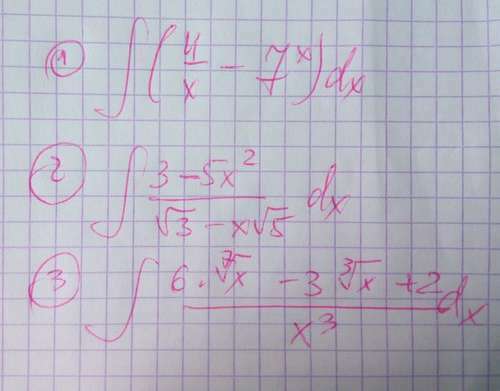 ① ∫(4/x − 7^x)dx
② ∫ (3 − 5x²)/(√3 − x√5) dx
③ ∫ (6·⁷√x − 3 ³√x + 2)/x³ dx